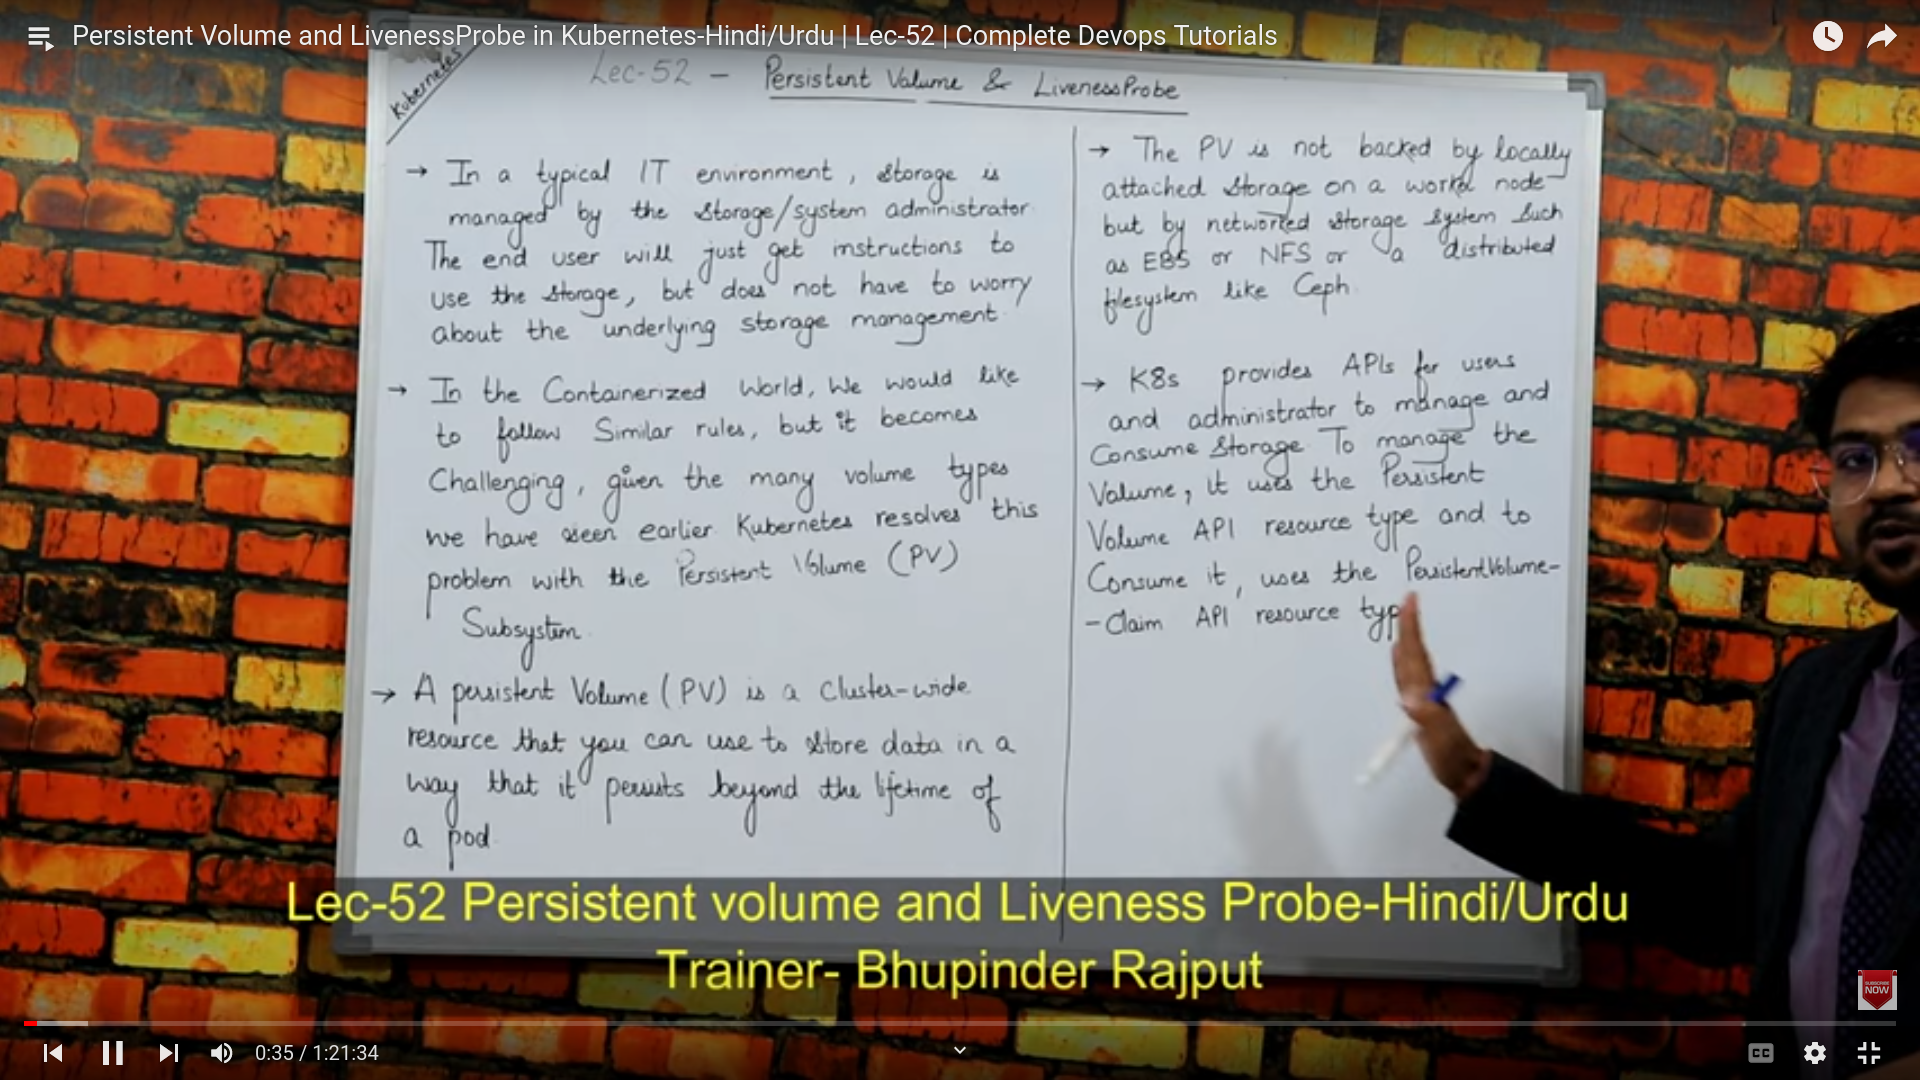 Persistent Volume and LivenessProbe in Kubernetes-Hindi/Urdu | Lec-52 | Complete Devops Tutorials
Kubernetes
Lec-52 - Persistent Volume & LivenessProbe
→ In a typical IT environment, storage is
managed by the storage/system administrator.
The end user will just get instructions to
use the storage, but does not have to worry
about the underlying storage management.
→ In the Containerized World, We would like
to follow Similar rules, but it becomes
Challenging, given the many volume types
we have seen earlier. Kubernetes resolves this
problem with the Persistent Volume (PV)
Subsystem.
→ A persistent Volume (PV) is a Cluster-wide
resource that you can use to store data in a
way that it persists beyond the lifetime of
a pod.
→ The PV is not backed by locally
attached storage on a worker node
but by networked storage system such
as EBS or NFS or a distributed
filesystem like Ceph.
→ K8s provides APIs for users
and administrator to manage and
Consume Storage. To manage the
Volume, it uses the Persistent
Volume API resource type and to
Consume it, uses the PersistentVolume-
-Claim API resource typ
Lec-52 Persistent volume and Liveness Probe-Hindi/Urdu
Trainer- Bhupinder Rajput
SUBSCRIBE
NOW
0:35 / 1:21:34
CC